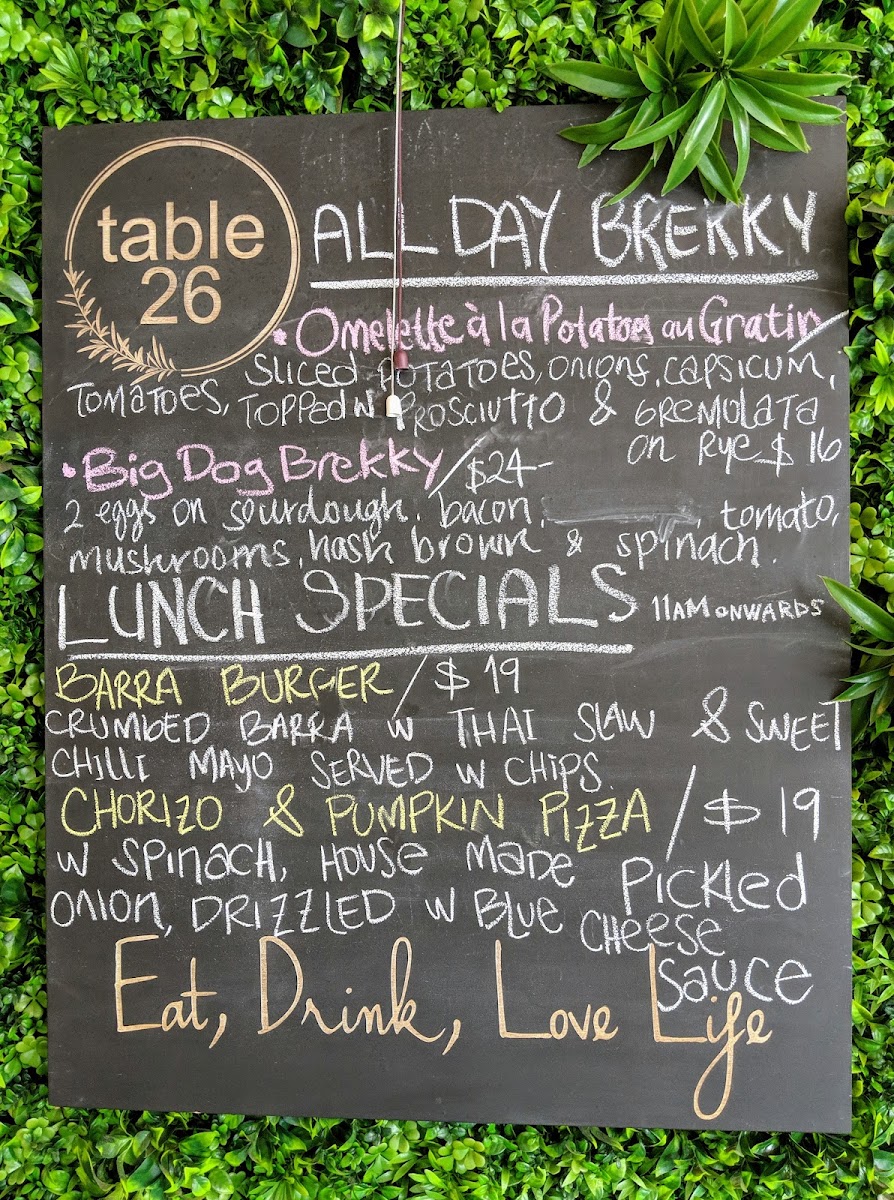 table
26
ALL DAY BREKKY
• Omelette à la Potatoes au Gratin /
SLICED POTATOES, ONIONS, CAPSICUM,
TOMATOES, TOPPED W PROSCIUTTO & GREMOLATA
ON RYE $16
• Big Dog Brekky / $24-
2 eggs on sourdough, bacon, tomato,
mushrooms, hash brown & spinach.
LUNCH SPECIALS 11AM ONWARDS
BARRA BURGER / $19
CRUMBED BARRA W THAI SLAW & SWEET
CHILLI MAYO SERVED W CHIPS.
CHORIZO & PUMPKIN PIZZA / $19
W SPINACH, HOUSE MADE PICKLED
ONION, DRIZZLED W BLUE CHEESE
SAUCE
Eat, Drink, Love Life